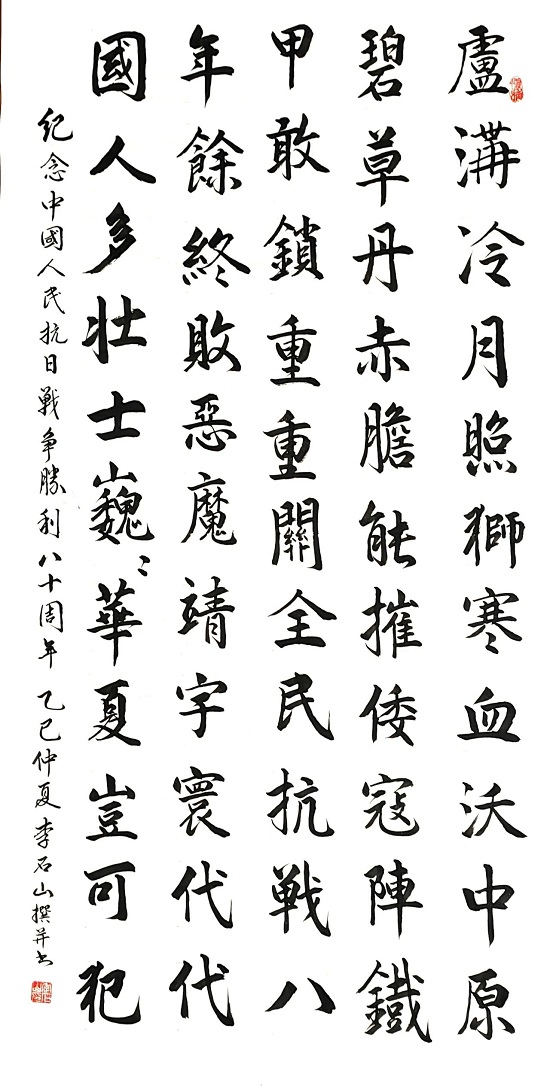 盧溝冷月照獅寒血沃中原
碧草丹赤膽能摧倭寇陣鐵
甲敢鎖重重關全民抗戰八
年餘終敗惡魔靖宇寰代代
國人多壯士巍〻華夏豈可犯
紀念中國人民抗日戰爭勝利八十周年 乙巳仲夏李石山撰并书